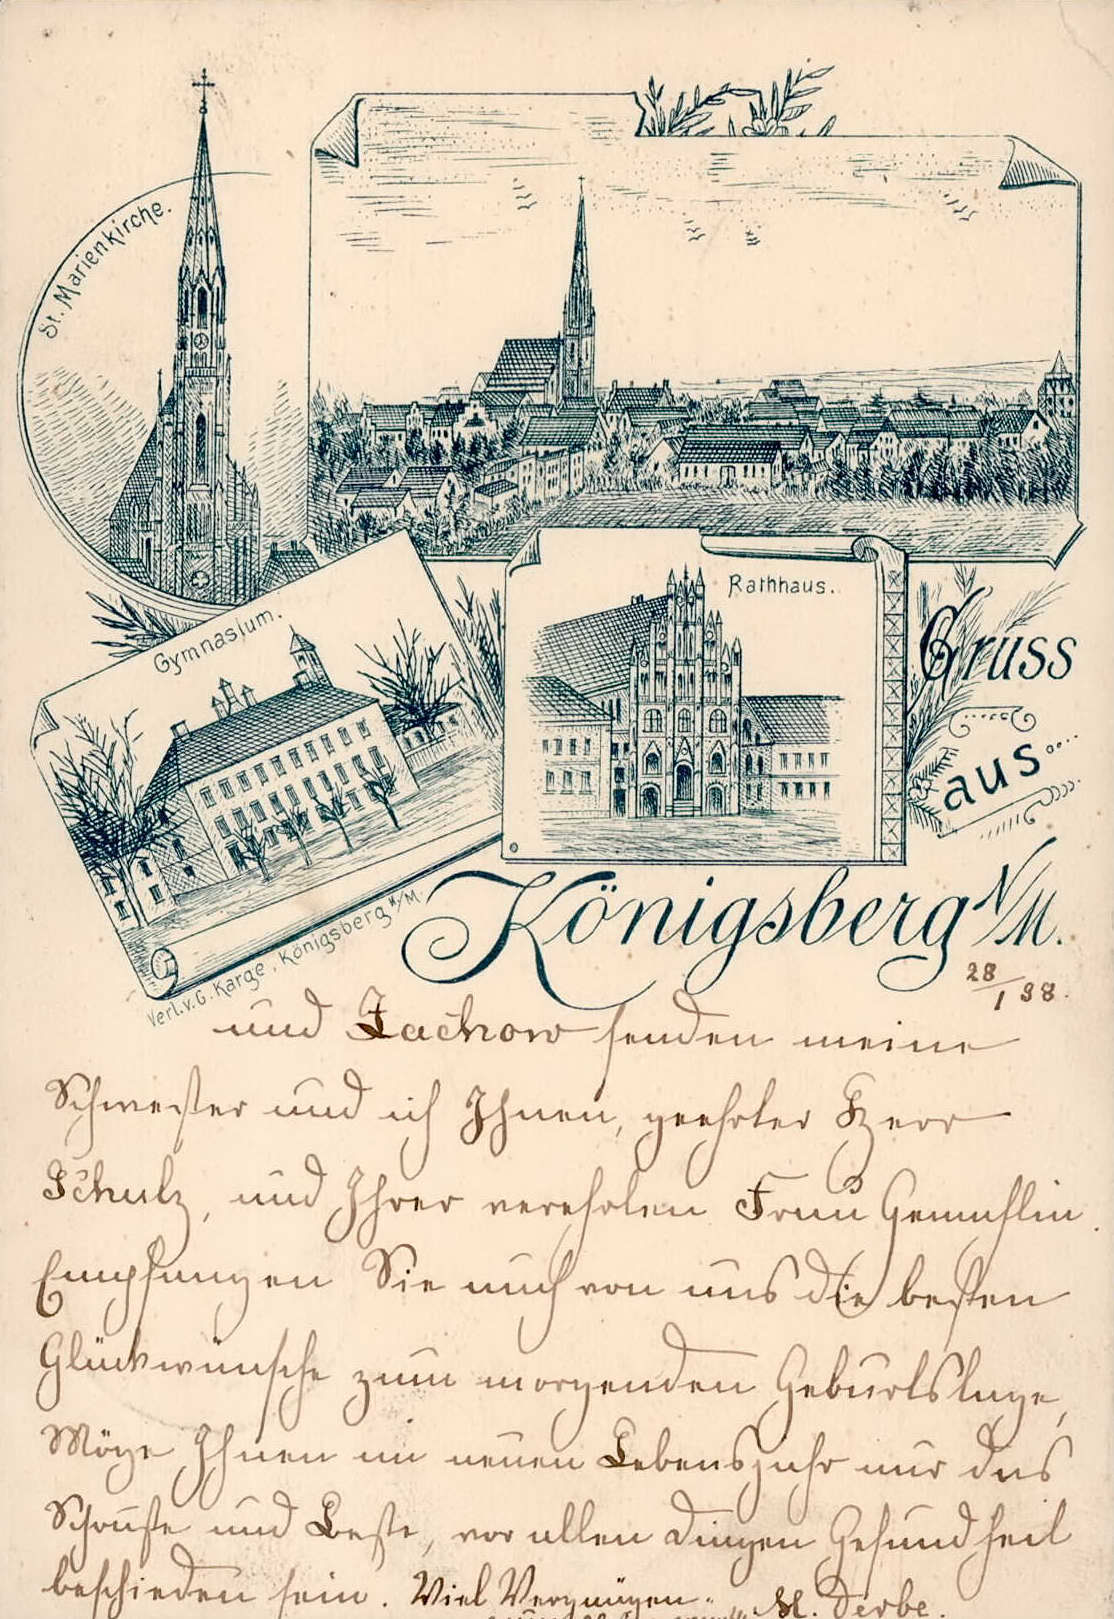 St. Marienkirche.
Gymnasium.
Rathhaus.
Gruss
aus
Königsberg N/M.
Verl. v. G. Karge, Königsberg N/M.
28/1 98.
und Zachow senden meine
Schwester und ich Ihnen, geehrter Herr
Schulz, und Ihrer verehrten Frau Gemahlin.
Empfangen Sie auch von uns die besten
Glückwünsche zum morgenden Geburtstage,
Möge Ihnen im neuen Lebensjahr nur das
Schönste und Beste, vor allen Dingen Gesundheit
beschieden sein. Viel Vergnügen. Derbe.